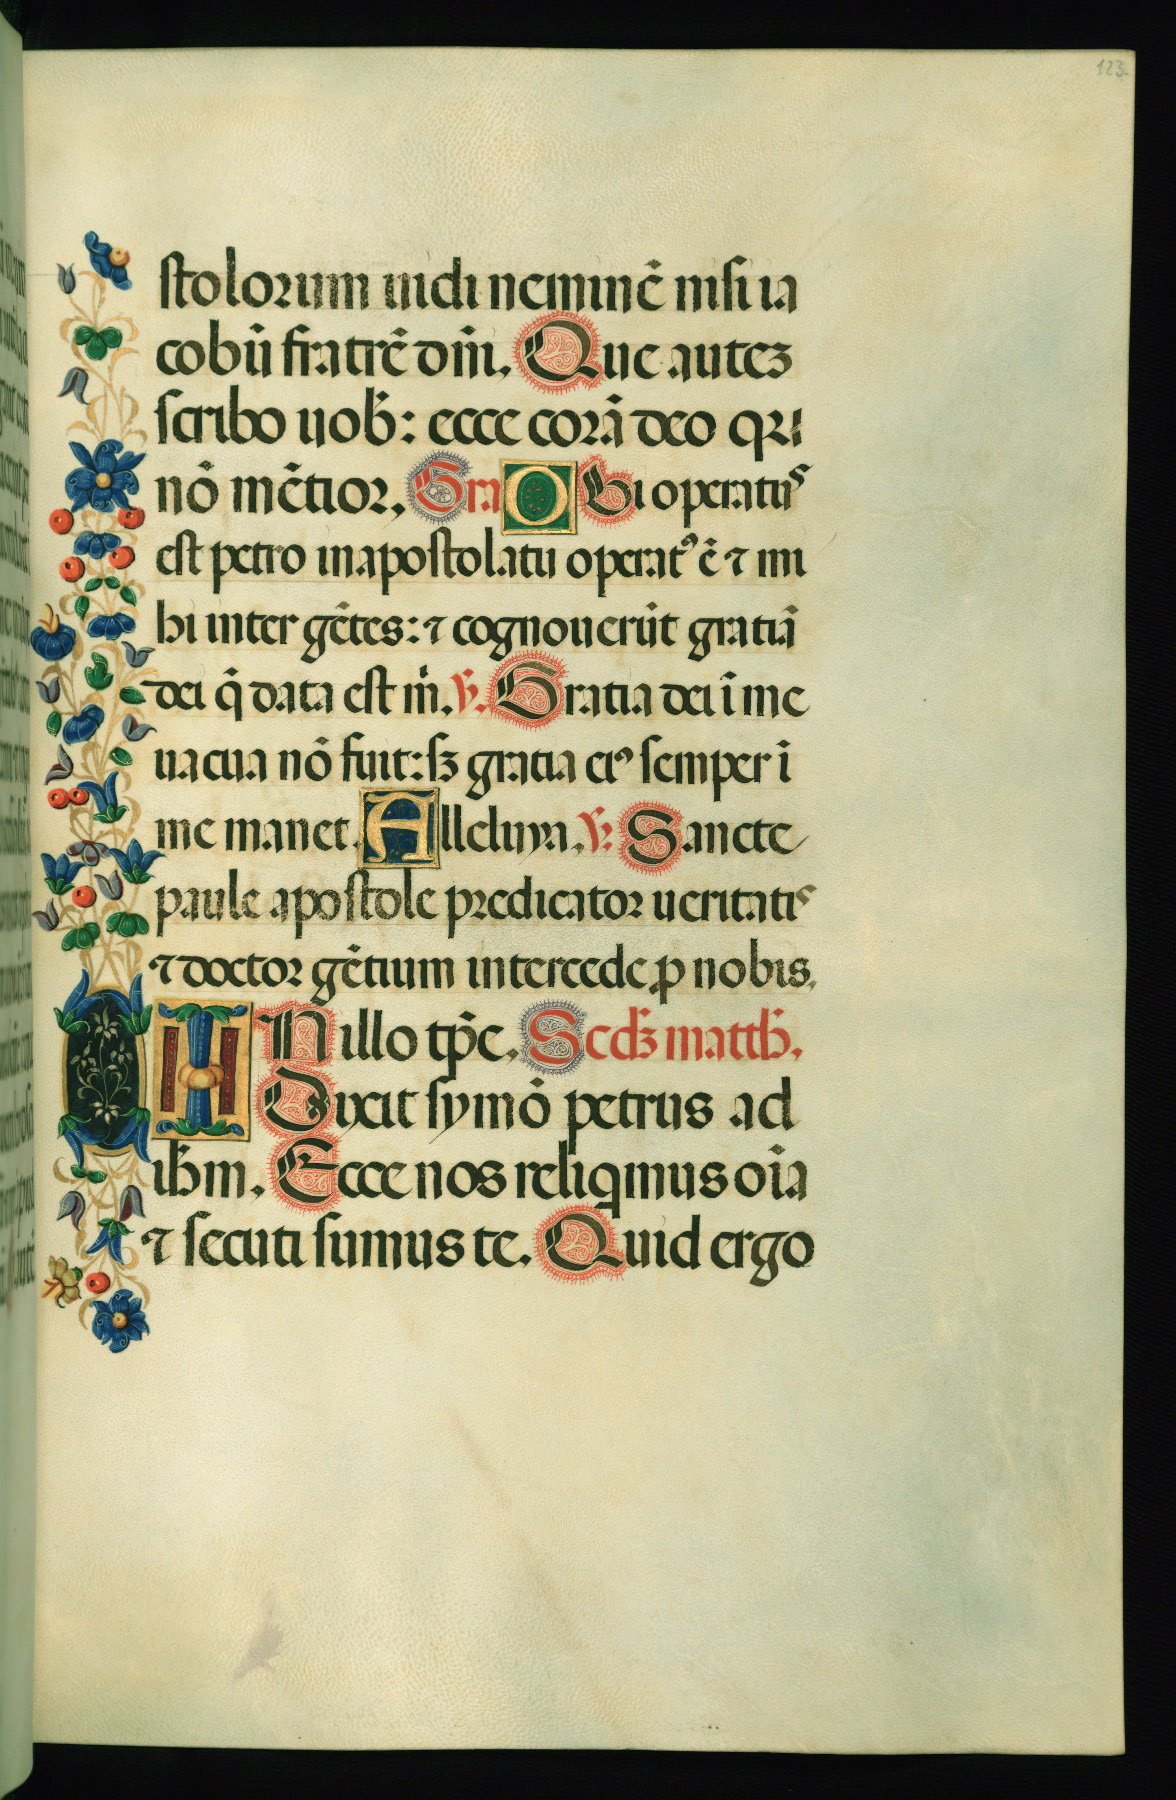 123
stolorum uidi neminē nisi ia
cobū fratrē dñi. Que autez
scribo uob̄: ecce corā deo qꝛ
nō mētior. Gra Qui operatus
est petro in apostolatu operatꝰ ē ⁊ mi
hi inter gētes: ⁊ cognouerūt gratiā
dei q̄ data est m̄. ℣. Gratia dei ī me
uacua nō fuit: sꝫ gratia eiꝰ semper ī
me manet. Alleluya. ℣. Sancte
paule apostole predicator ueritatis
⁊ doctor gētium intercede ꝓ nobis.
IN illo tp̄e. Scdꝫ matth̄.
Dixit symō petrus ad
ih̄m. Ecce nos reliqimus oīa
⁊ secuti sumus te. Quid ergo